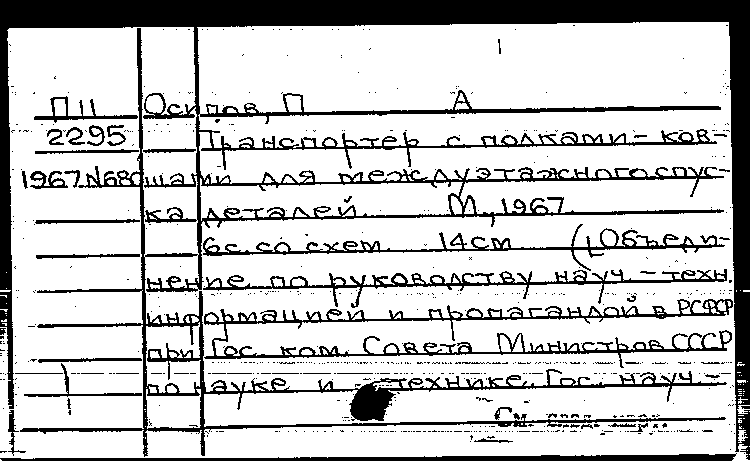 П11 Осипов, П А
2295 Транспортер с полками-ков-
1967 №680 шами для междуэтажного спус-
ка деталей. М., 1967.
6с. со схем. 14см ([Объеди-
нение по руководству науч.-техн.
информацией и пропагандой в РСФСР
при Гос. ком. Совета Министров СССР
по науке и технике. Гос. науч.-
См.